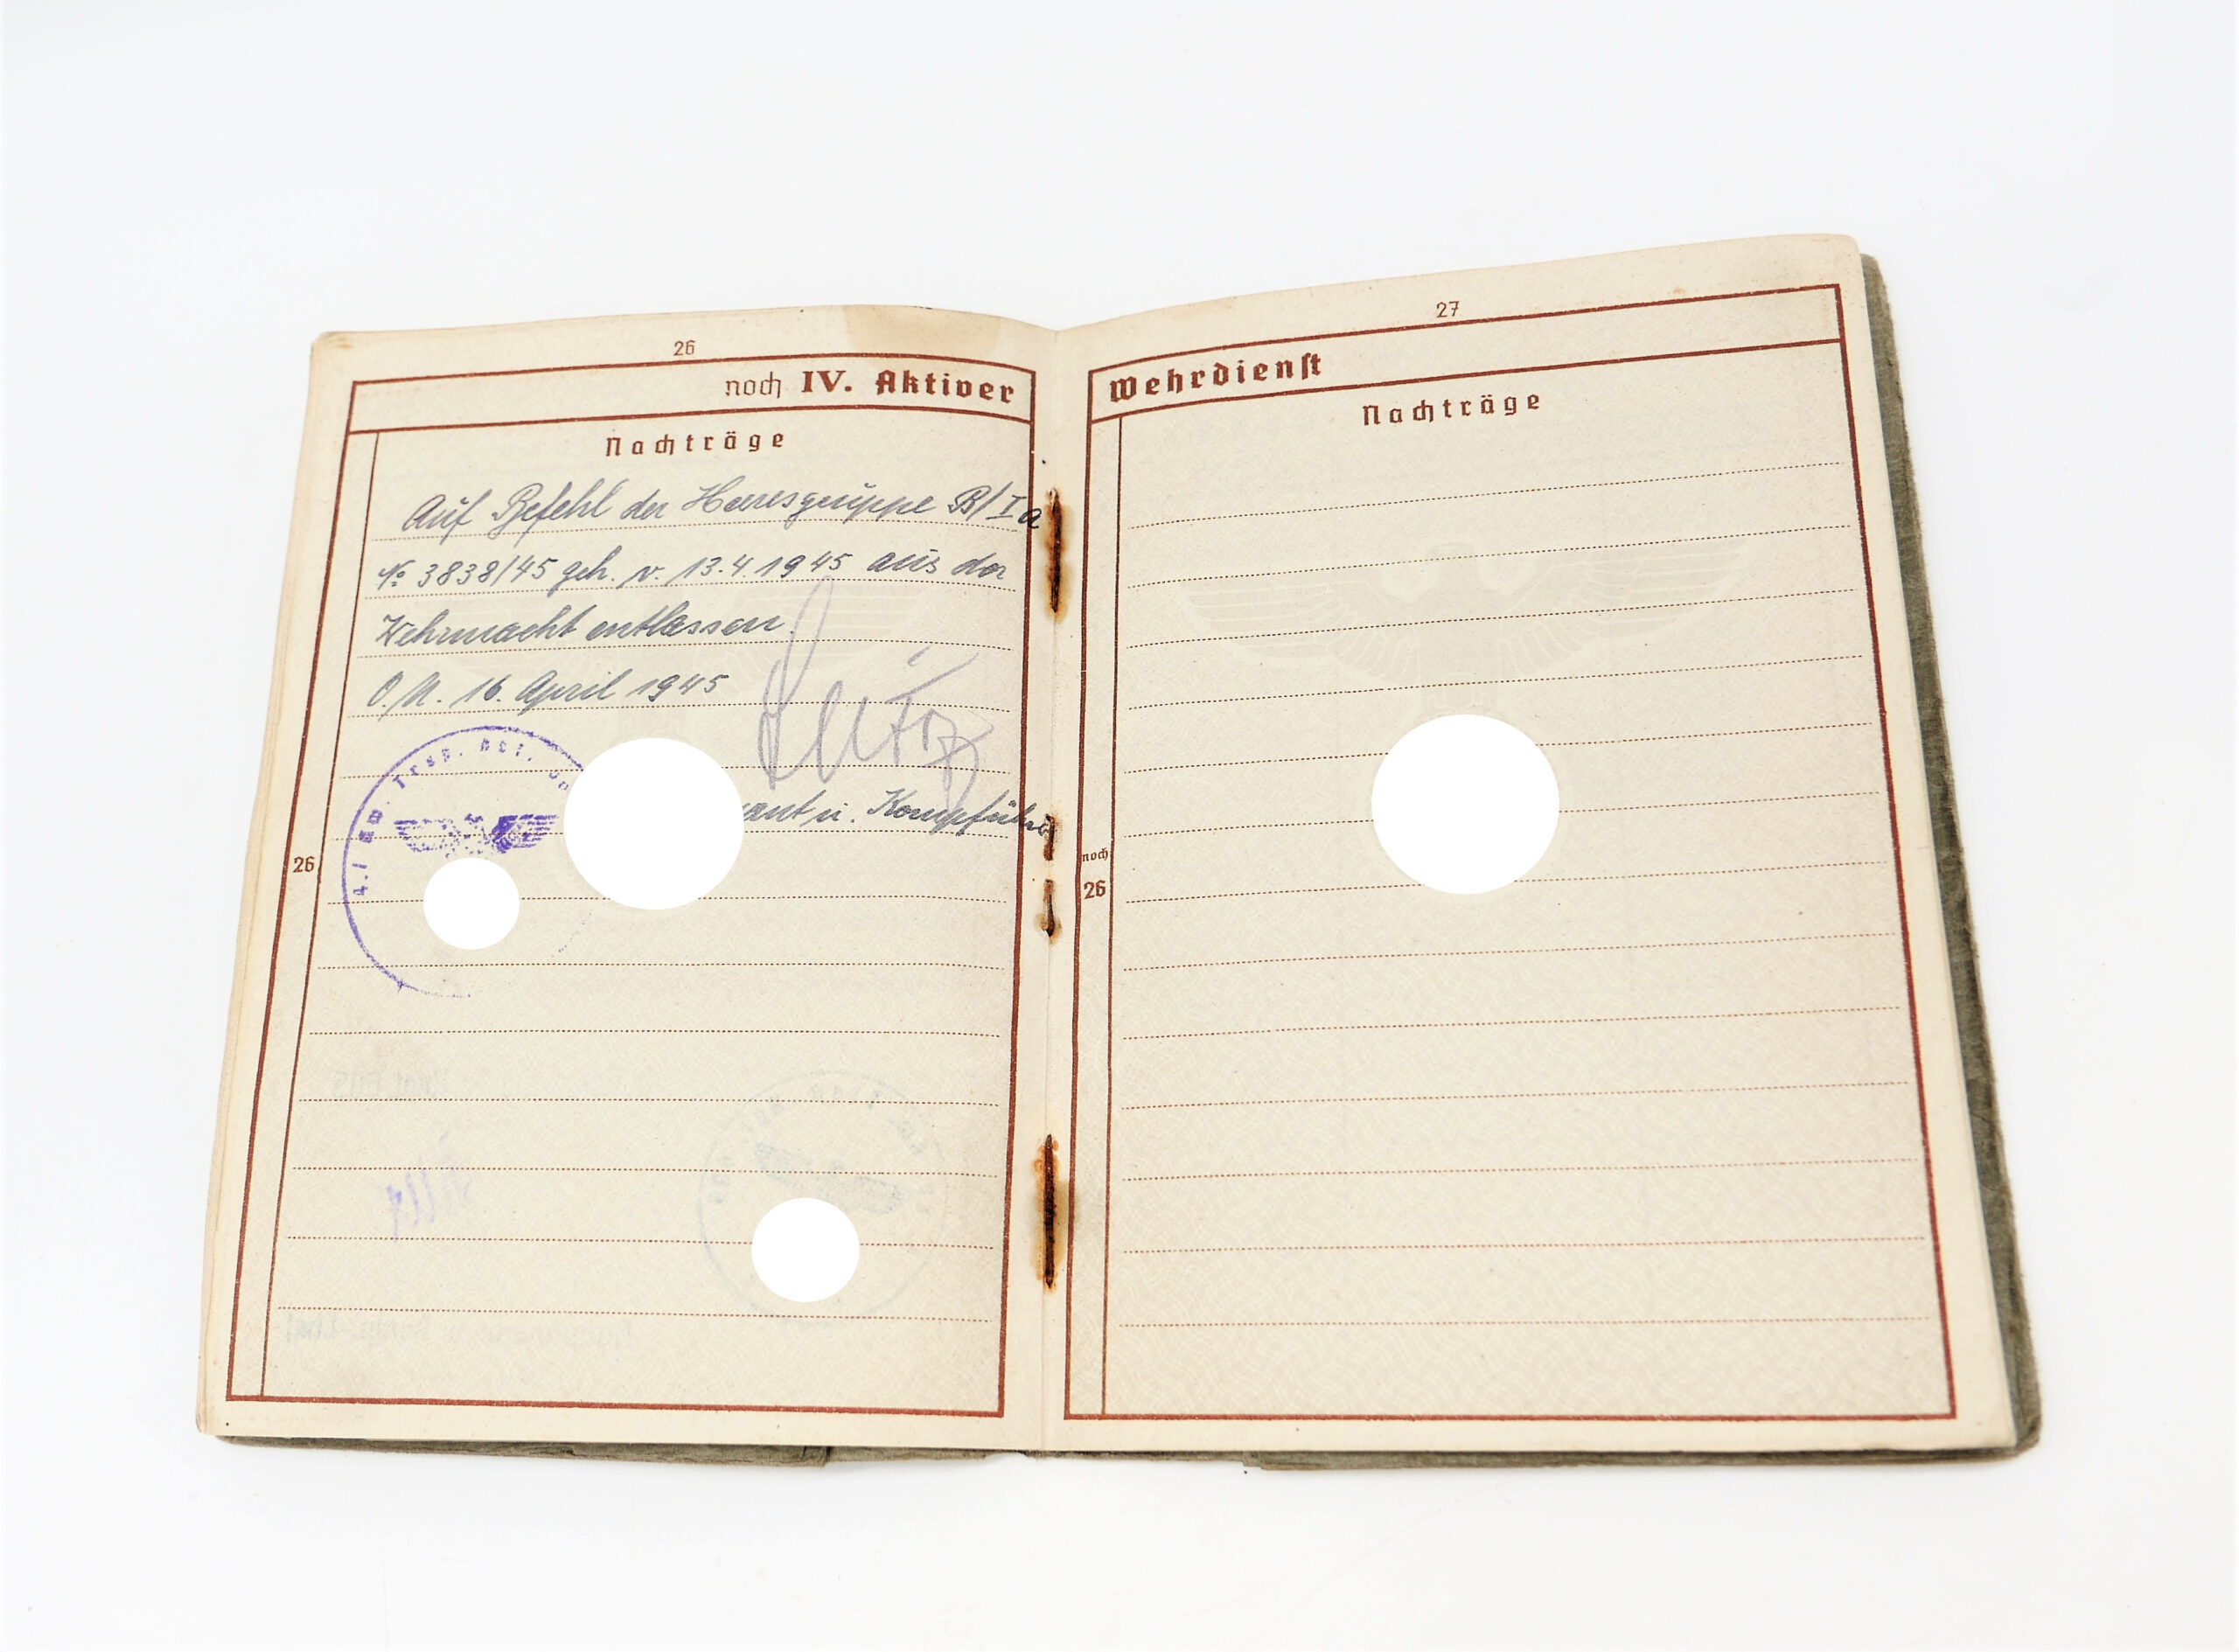 26
noch IV. Aktiver
Nachträge
Auf Befehl der Heeresgruppe B/Ia
No 3838/45 geh. v. 13.4.1945 aus der
Wehrmacht entlassen.
O.U. 16. April 1945
ant u. Kompführer
26
27
Wehrdienst
Nachträge
noch
26